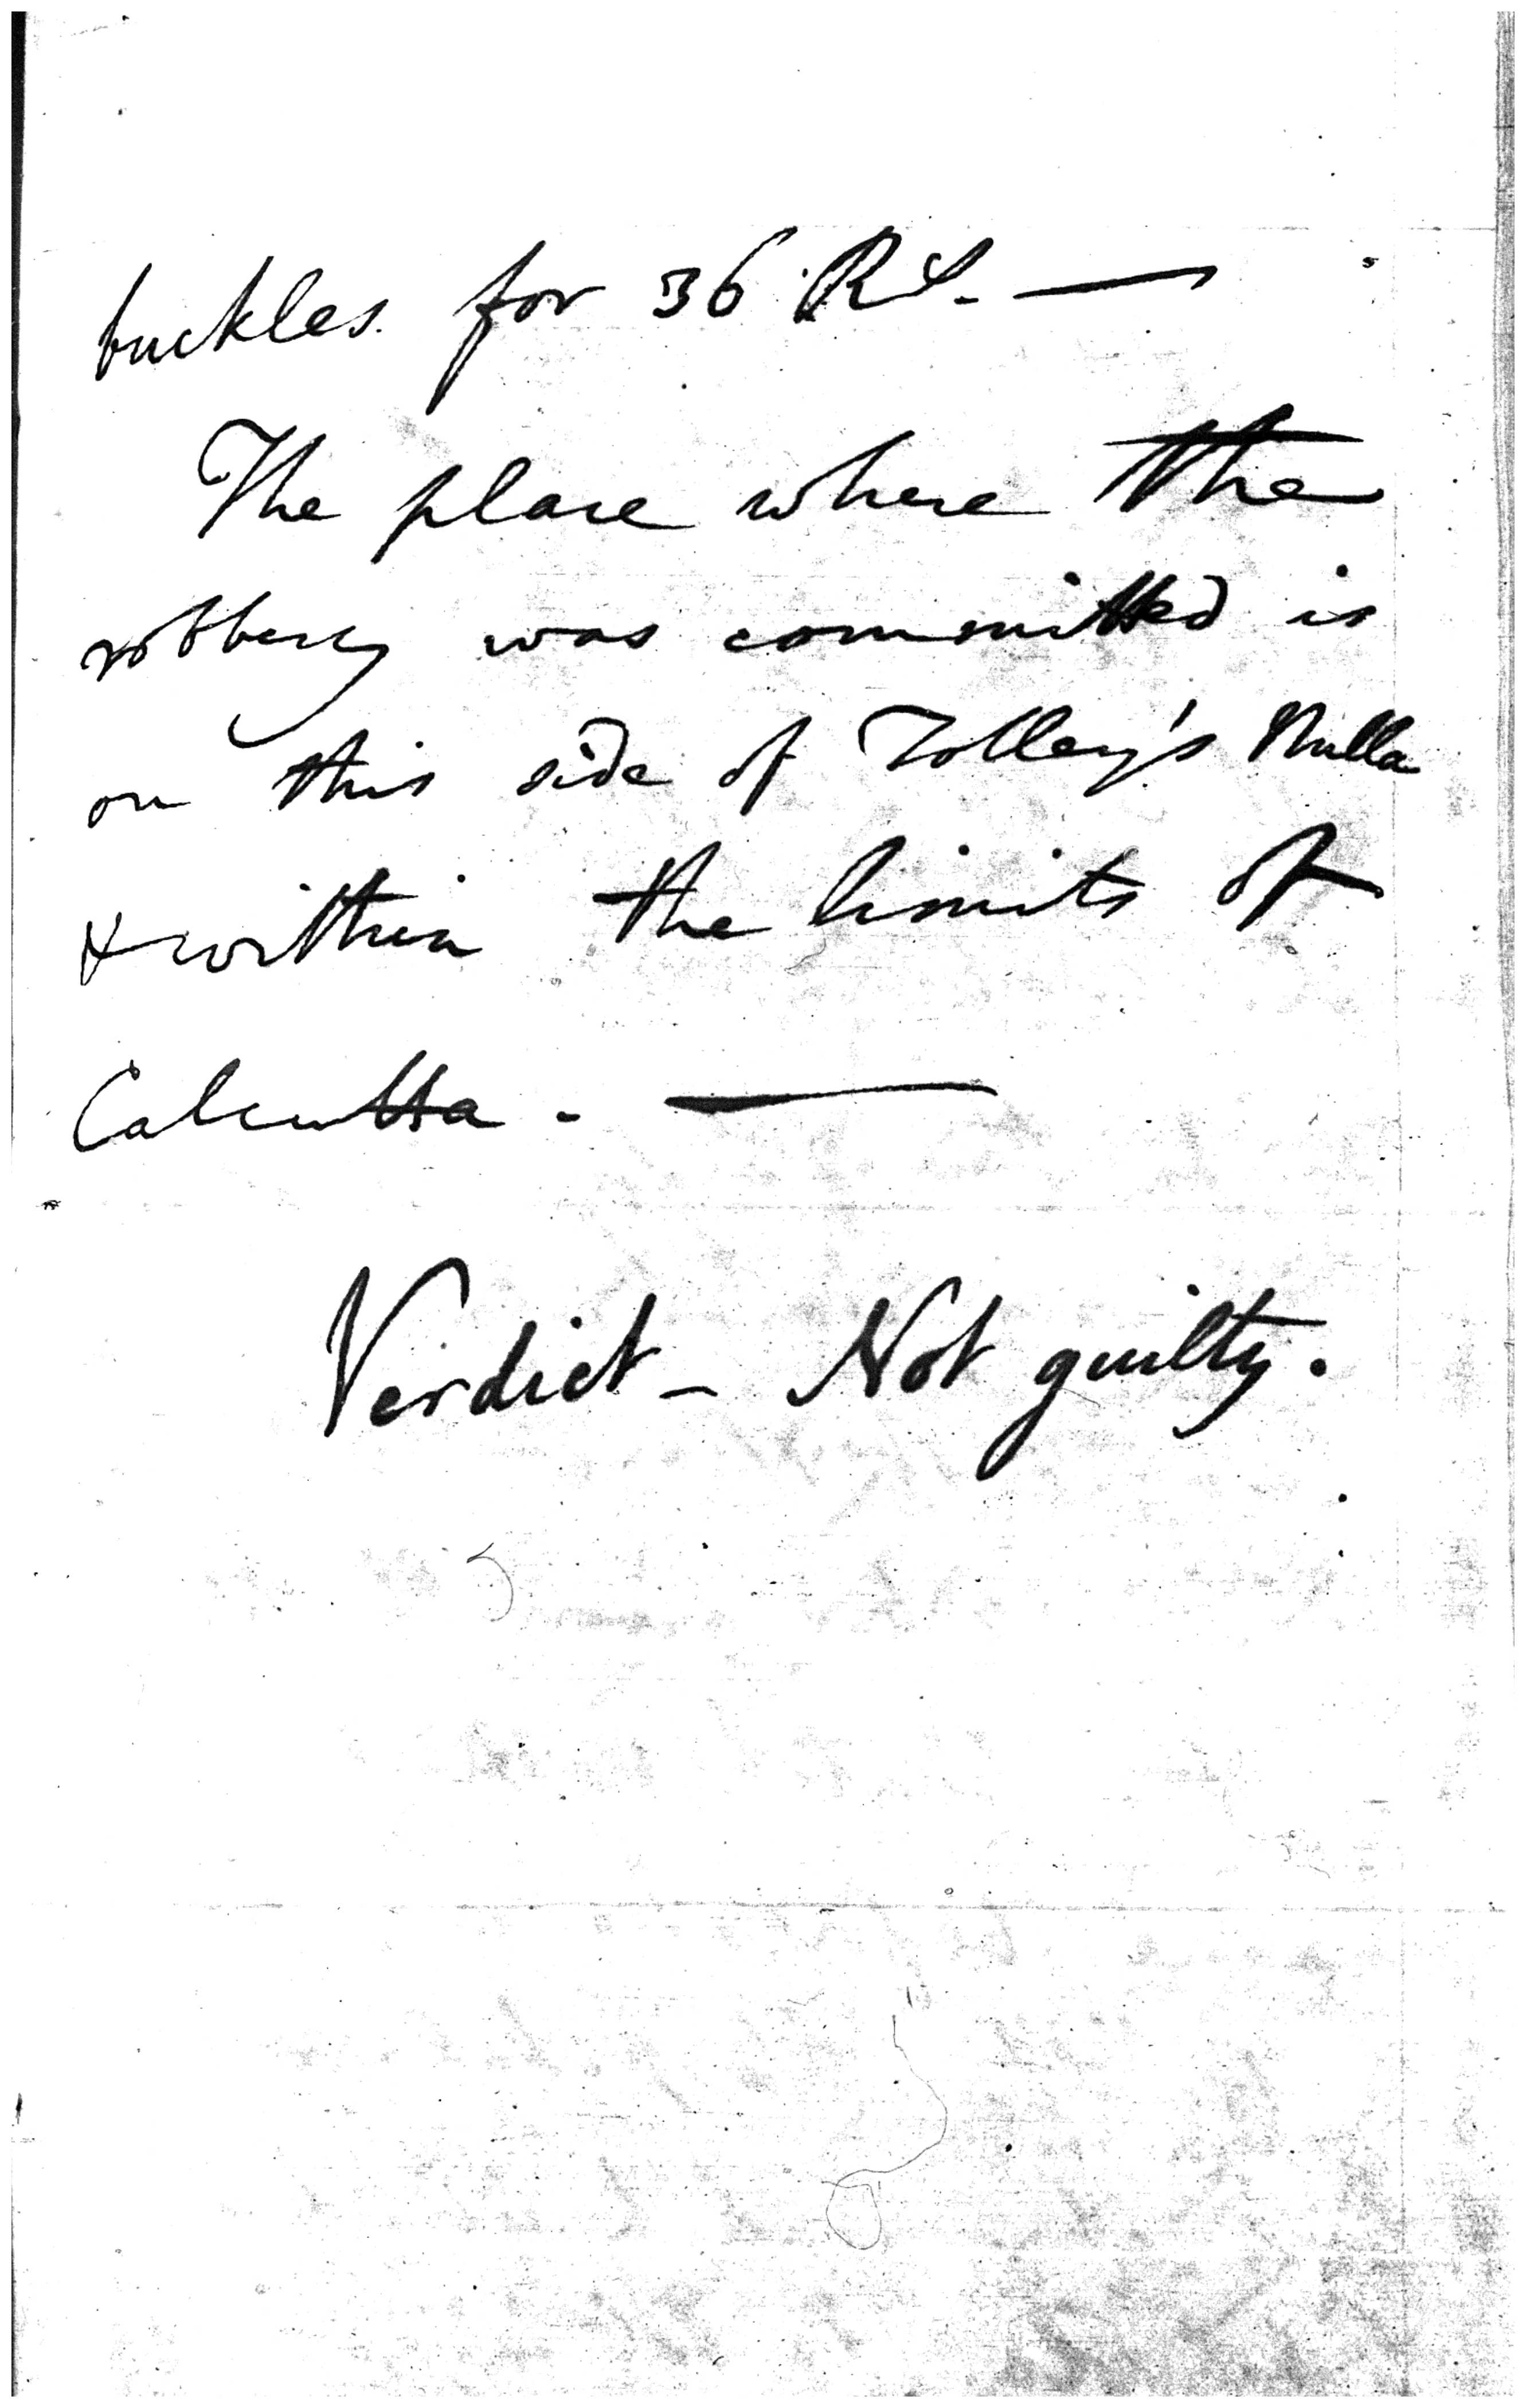 buckles. for 36 Rs. —
The place where the
robbery was committed is
on this side of Tolley's Nulla
& within the limits of
Calcutta. —
Verdict - Not guilty.